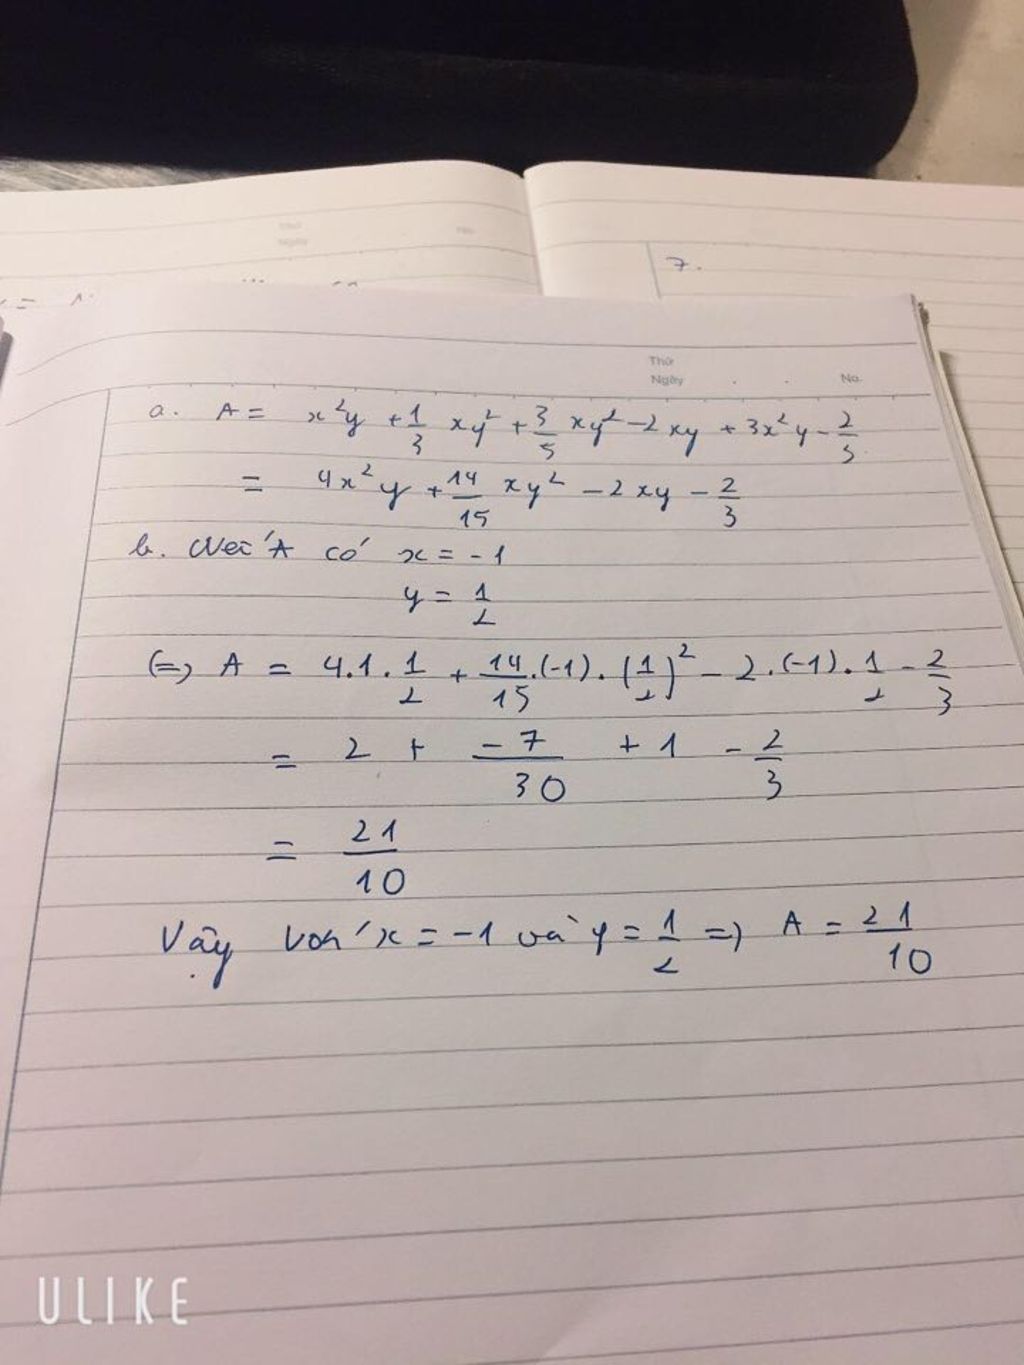 Thứ
Ngày No.
7.
Thứ
Ngày No.
a. A = x²y + 1/3 xy² + 3/5 xy² - 2xy + 3x²y - 2/3
= 4x²y + 14/15 xy² - 2xy - 2/3
b. Nếu A có x = -1
y = 1/2
(=) A = 4.1.1/2 + 14/15.(-1).(1/2)² - 2.(-1).1/2 - 2/3
= 2 + -7/30 + 1 - 2/3
= 21/10
Vậy với x = -1 và y = 1/2 => A = 21/10
ULIKE